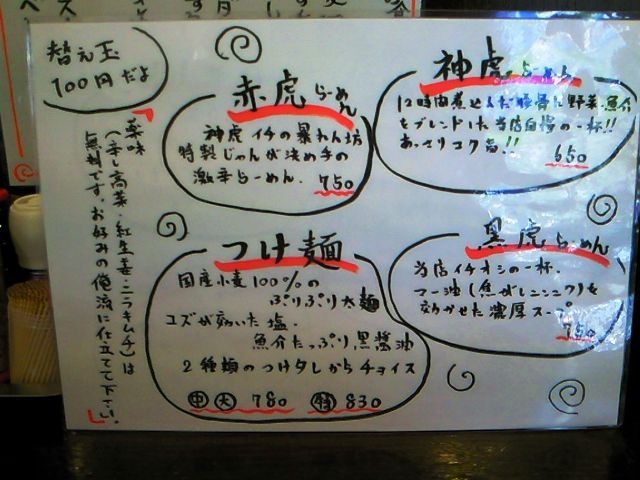 替え玉
100円だよ
神虎らーめん
12時間煮込んだ豚骨に野菜・魚介
をブレンドした当店自慢の一杯!!
あっさりコク旨!!
650
赤虎らーめん
神虎イチの暴れん坊
特製じゃんが決め手の
激辛らーめん.
750
黒虎らーめん
当店イチオシの一杯.
マー油(焦がしニンニク)を
効かせた濃厚スープ
750
つけ麺
国産小麦100%の
ぷりぷり太麺
コズが効いた塩.
魚介たっぷり黒醤油
2種類のつけダしからチョイス
中 大 780 特 830
薬味
(辛し高菜・紅生姜・ニラキムチ)は
無料です。お好みの俺流に仕立てて下さい。